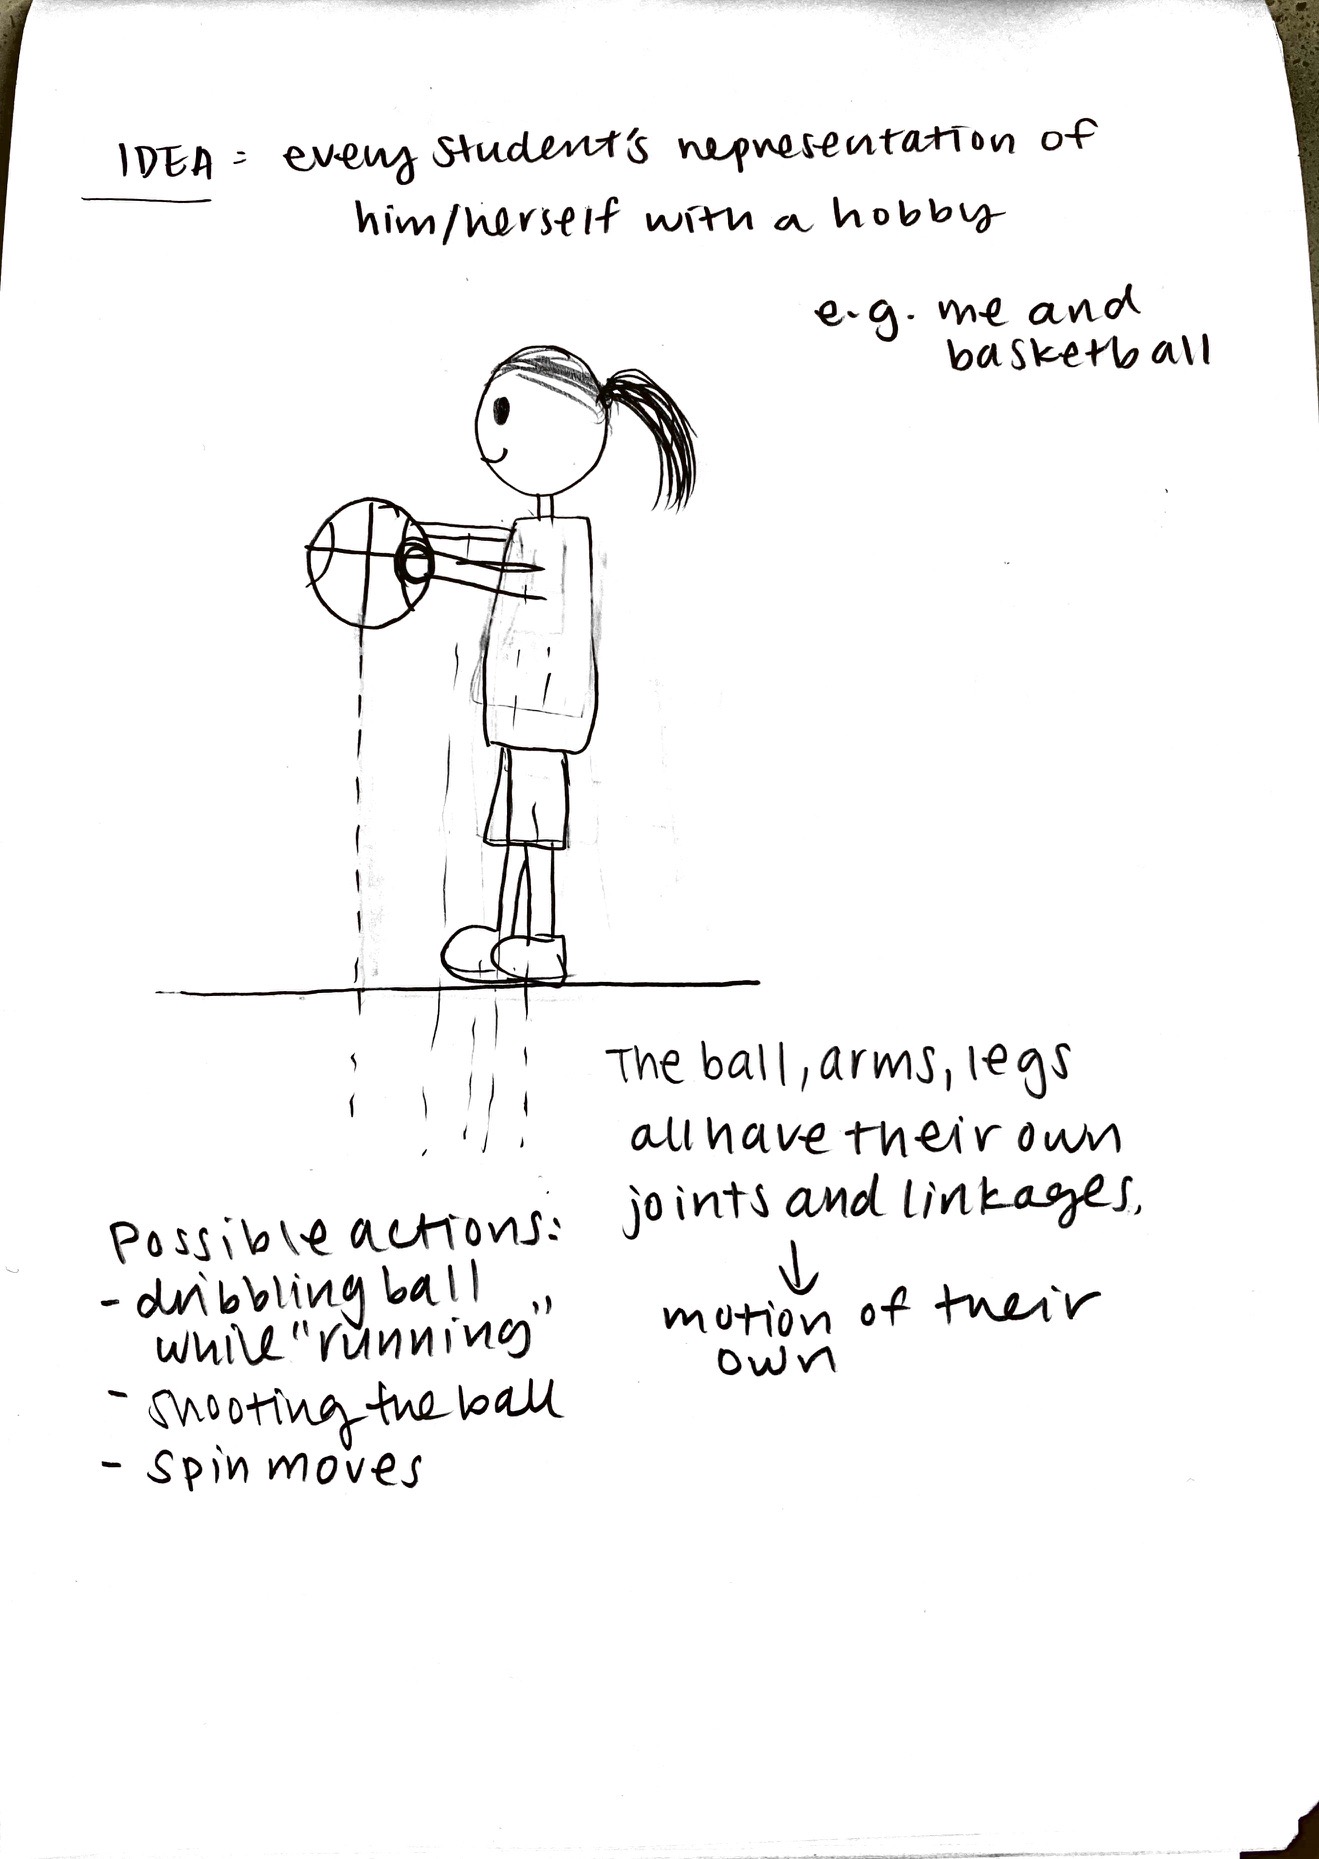 IDEA = every student's representation of
him/herself with a hobby
e.g. me and
basketball
The ball, arms, legs
all have their own
joints and linkages.
↓
motion of their
own
Possible actions:
- dribbling ball
while "running"
- shooting the ball
- spin moves